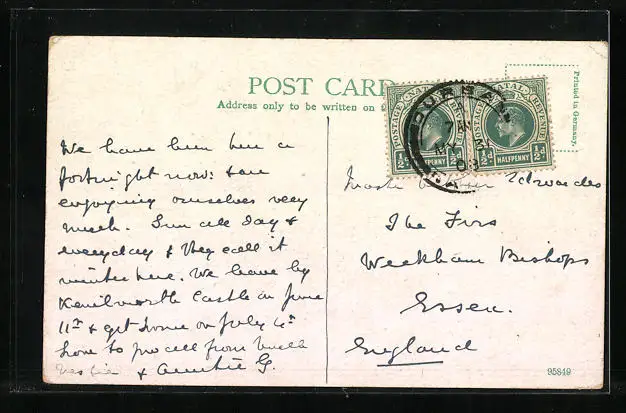 POST CARD
Address only to be written on
Printed in Germany.
POSTAGE NATAL REVENUE
POSTAGE NATAL REVENUE
½d HALFPENNY ½d
½d HALFPENNY ½d
DURBAN
MY
We have been here a
fortnight now: & are
enjoying ourselves very
much. Sun all day &
everyday & they call it
winter here. We leave by
Kenilworth Castle on June
11th & get home on July 4th
Love to you all from Uncle
& Auntie G.
Edwardes
The Firs
Weekham Bishops
Essex.
England
95849